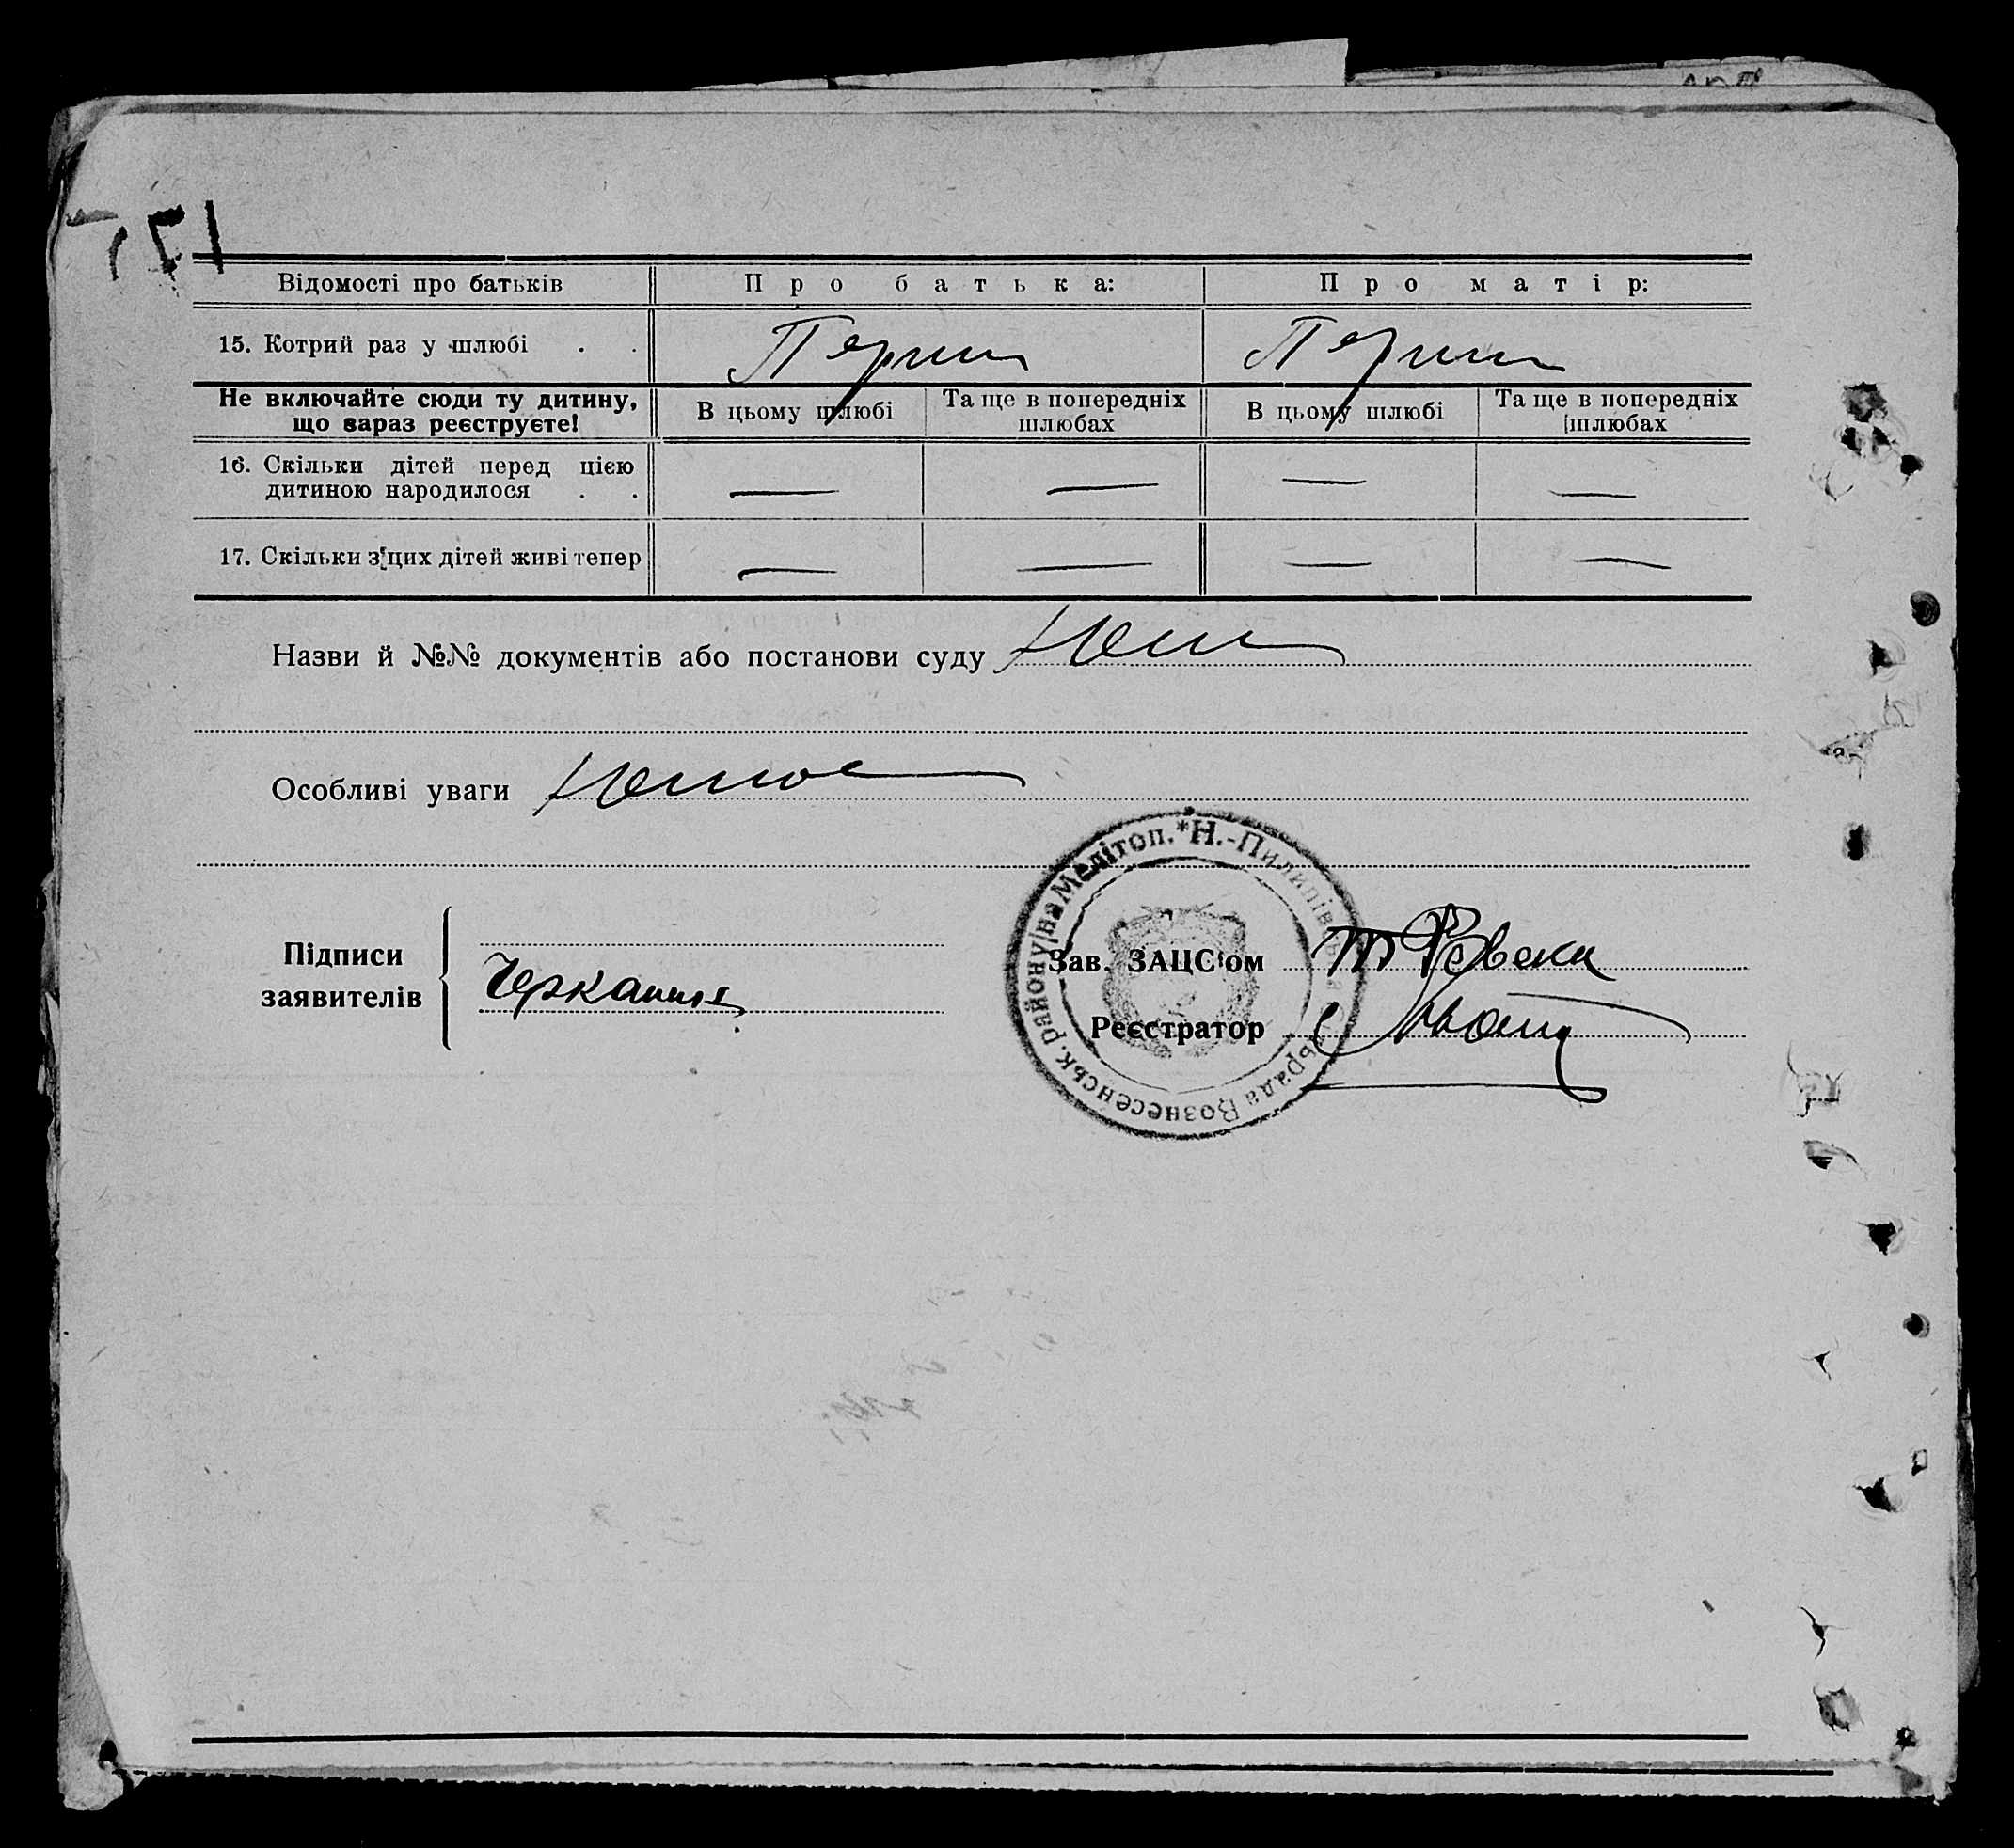 Відомості про батьків
Про батька:
Про матір:
15. Котрий раз у шлюбі . .
Перш
Перш
Не включайте сюди ту дитину,
що зараз реєструєте!
В цьому шлюбі
Та ще в попередніх
шлюбах
В цьому шлюбі
Та ще в попередніх
шлюбах
16. Скільки дітей перед цією
дитиною народилося . .
— — — —
17. Скільки з цих дітей живі тепер
— — — —
Назви й №№ документів або постанови суду
Особливі уваги
Підписи
заявителів
Зав. ЗАЦС'ом
Реєстратор
Н.-Пилипівська сільрада Вознесенськ. району на Мелітоп.